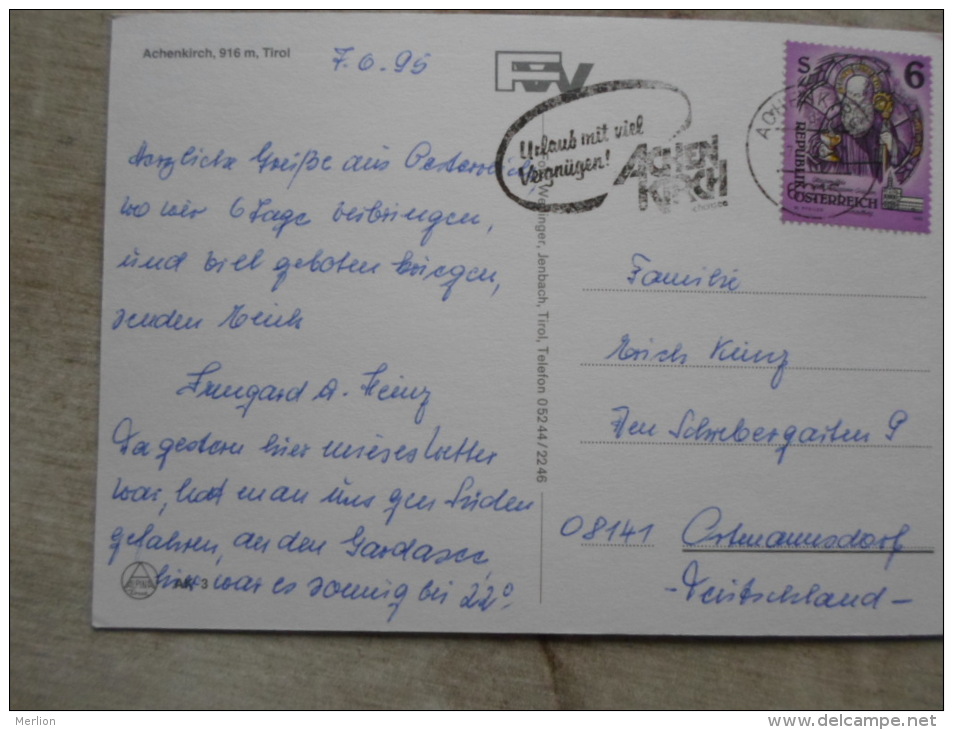 Achenkirch, 916 m, Tirol
7.6.95
Herzliche Grüße aus Oesterreich,
wo wir 6 Tage verbringen,
und viel geboten kriegen,
senden Euch
Irmgard u. Heinz
Da gestern hier mieses Wetter
war, hat man uns gen Süden
gefahren, an den Gardasee,
hier war es sonnig bei 22°.
3
Urlaub mit viel
Vergnügen!
ACHEN
KIRCH
S 6
REPUBLIK
ÖSTERREICH
Jenbach, Tirol, Telefon 0 52 44 / 22 46
Familie
Erich Künz
Den Schrebergärten 9
08141 Ortmannsdorf
-Deutschland-
Merlion
www.delcampe.net